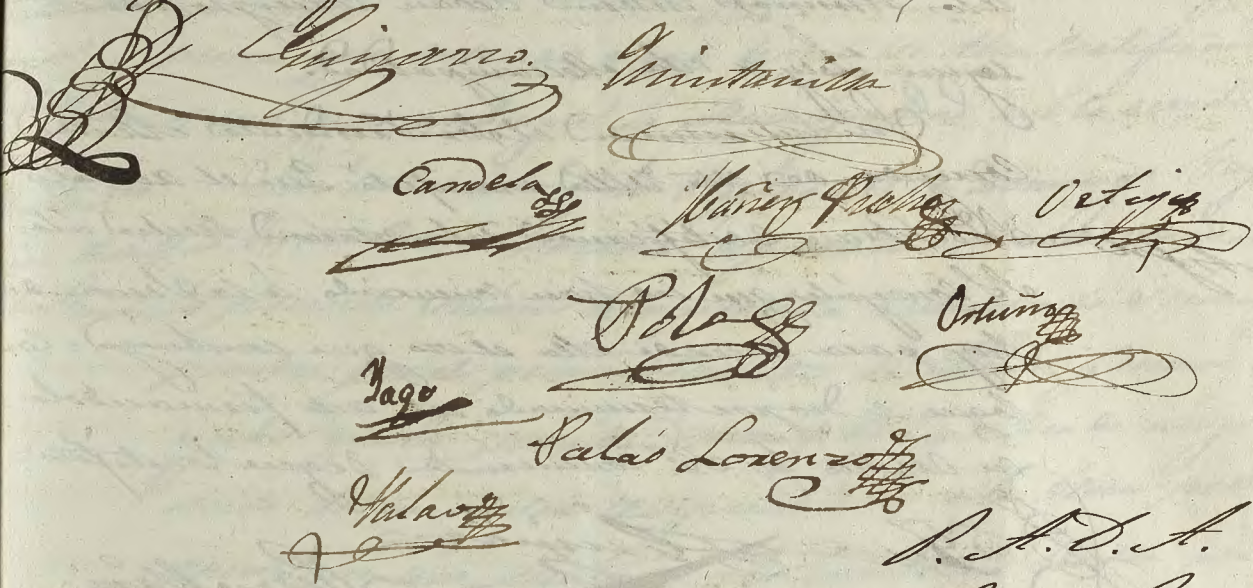 Guijarro. Quintanilla
Candela Ibáñez Ortija
Pola Ortuño
Yago
Palás Lorenzo
Palao
P. A. D. A.